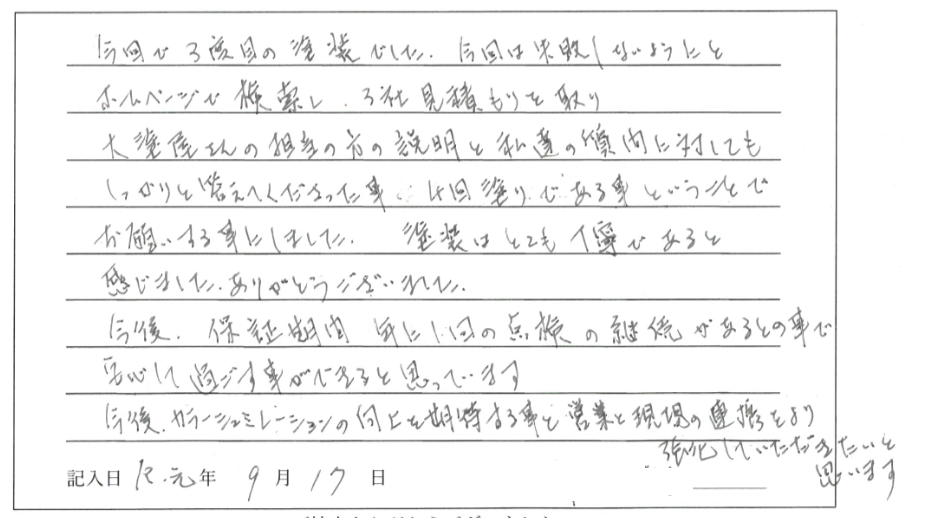 今回で3度目の塗装でした．今回は失敗しないようにと
ホームページで検索し、3社見積もりを取り
大塗屋さんの担当の方の説明と私達の質問に対しても
しっかりと答えてくださった事、4回塗りである事ということで
お願いする事にしました．塗装はとても丁寧であると
感じました．ありがとうございました．
今後．保証期間 年に1回の点検の継続があるとの事で
安心して過ごす事ができると思っています
今後、カラーシュミレーションの向上を期待する事と営業と現場の連携をより
強化していただきたいと
思います
記入日 R.元年 9月17日